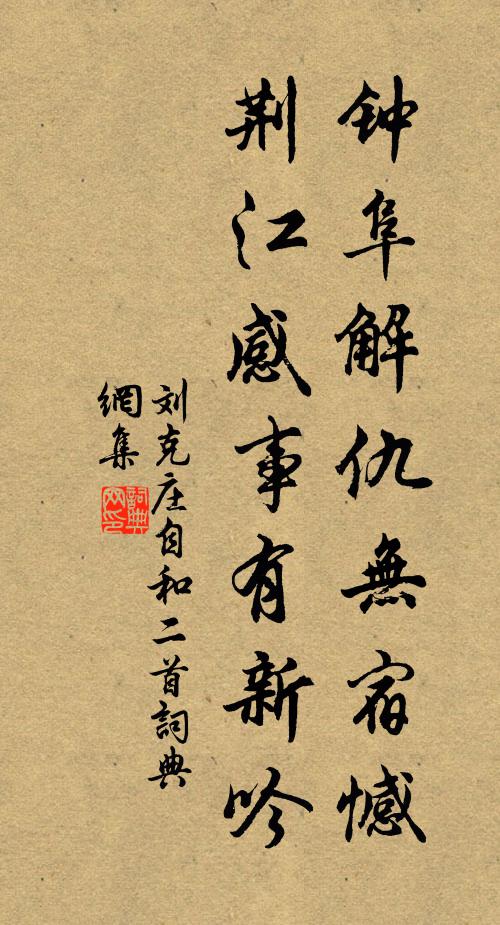 钟阜解仇無宿憾
荆江感事有新吟
刘克庄自和二首詞典
網集
詞典
网印